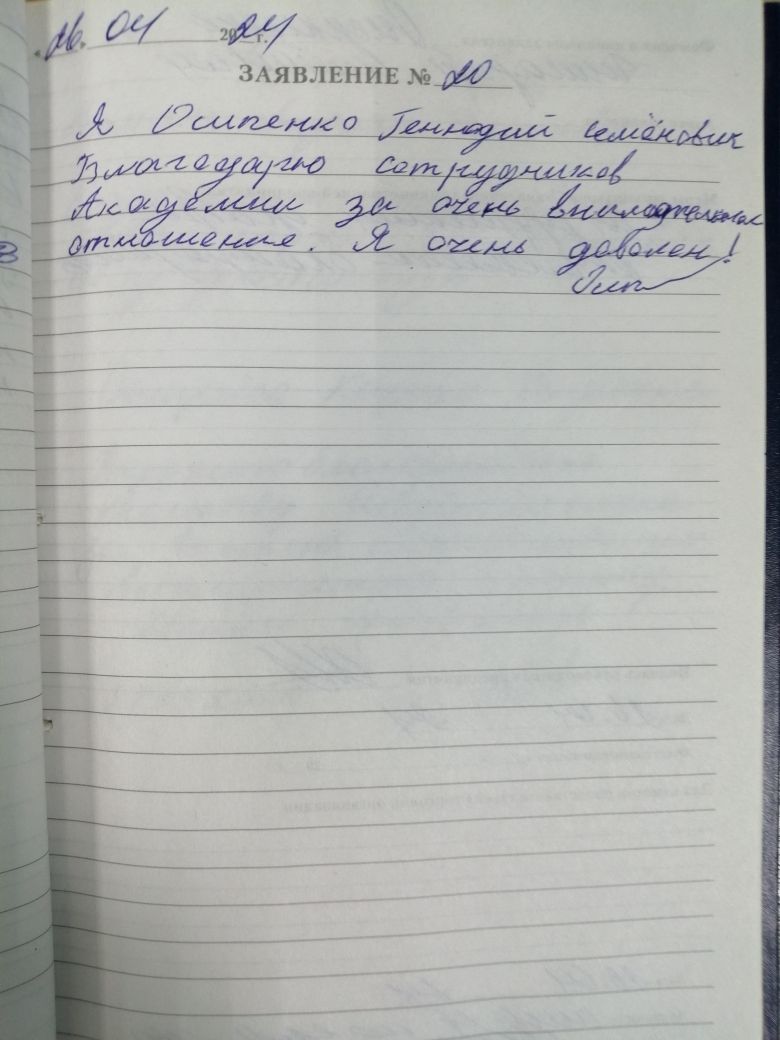 « 26 » 04 2024 г.
ЗАЯВЛЕНИЕ № 20
Я Осипенко Геннодий Семёнович
Благодарю сотрудников
Академии за очень внимательное
отношение. Я очень доволен!